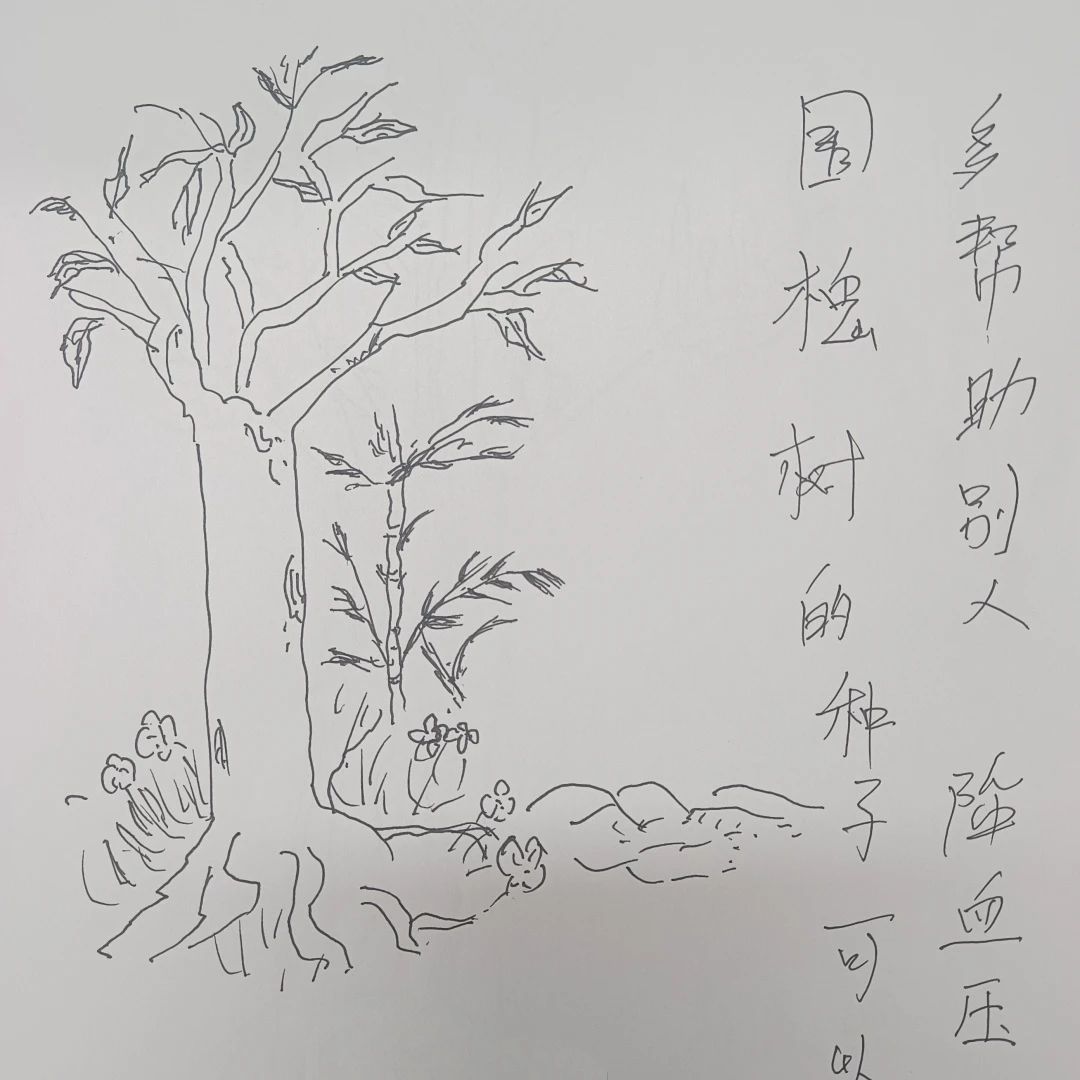 多帮助别人 降血压
树的种子可以